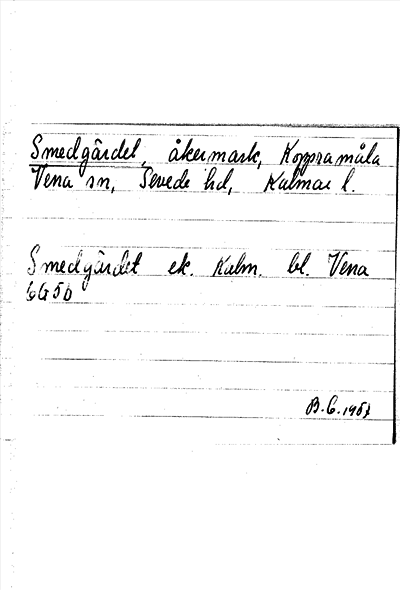 Smedgärdet, åkermark, Koppramåla
Vena sn, Sevede hd, Kalmar l.
Smedgärdet ek. Kalm. bl. Vena
6G5b
B.G.